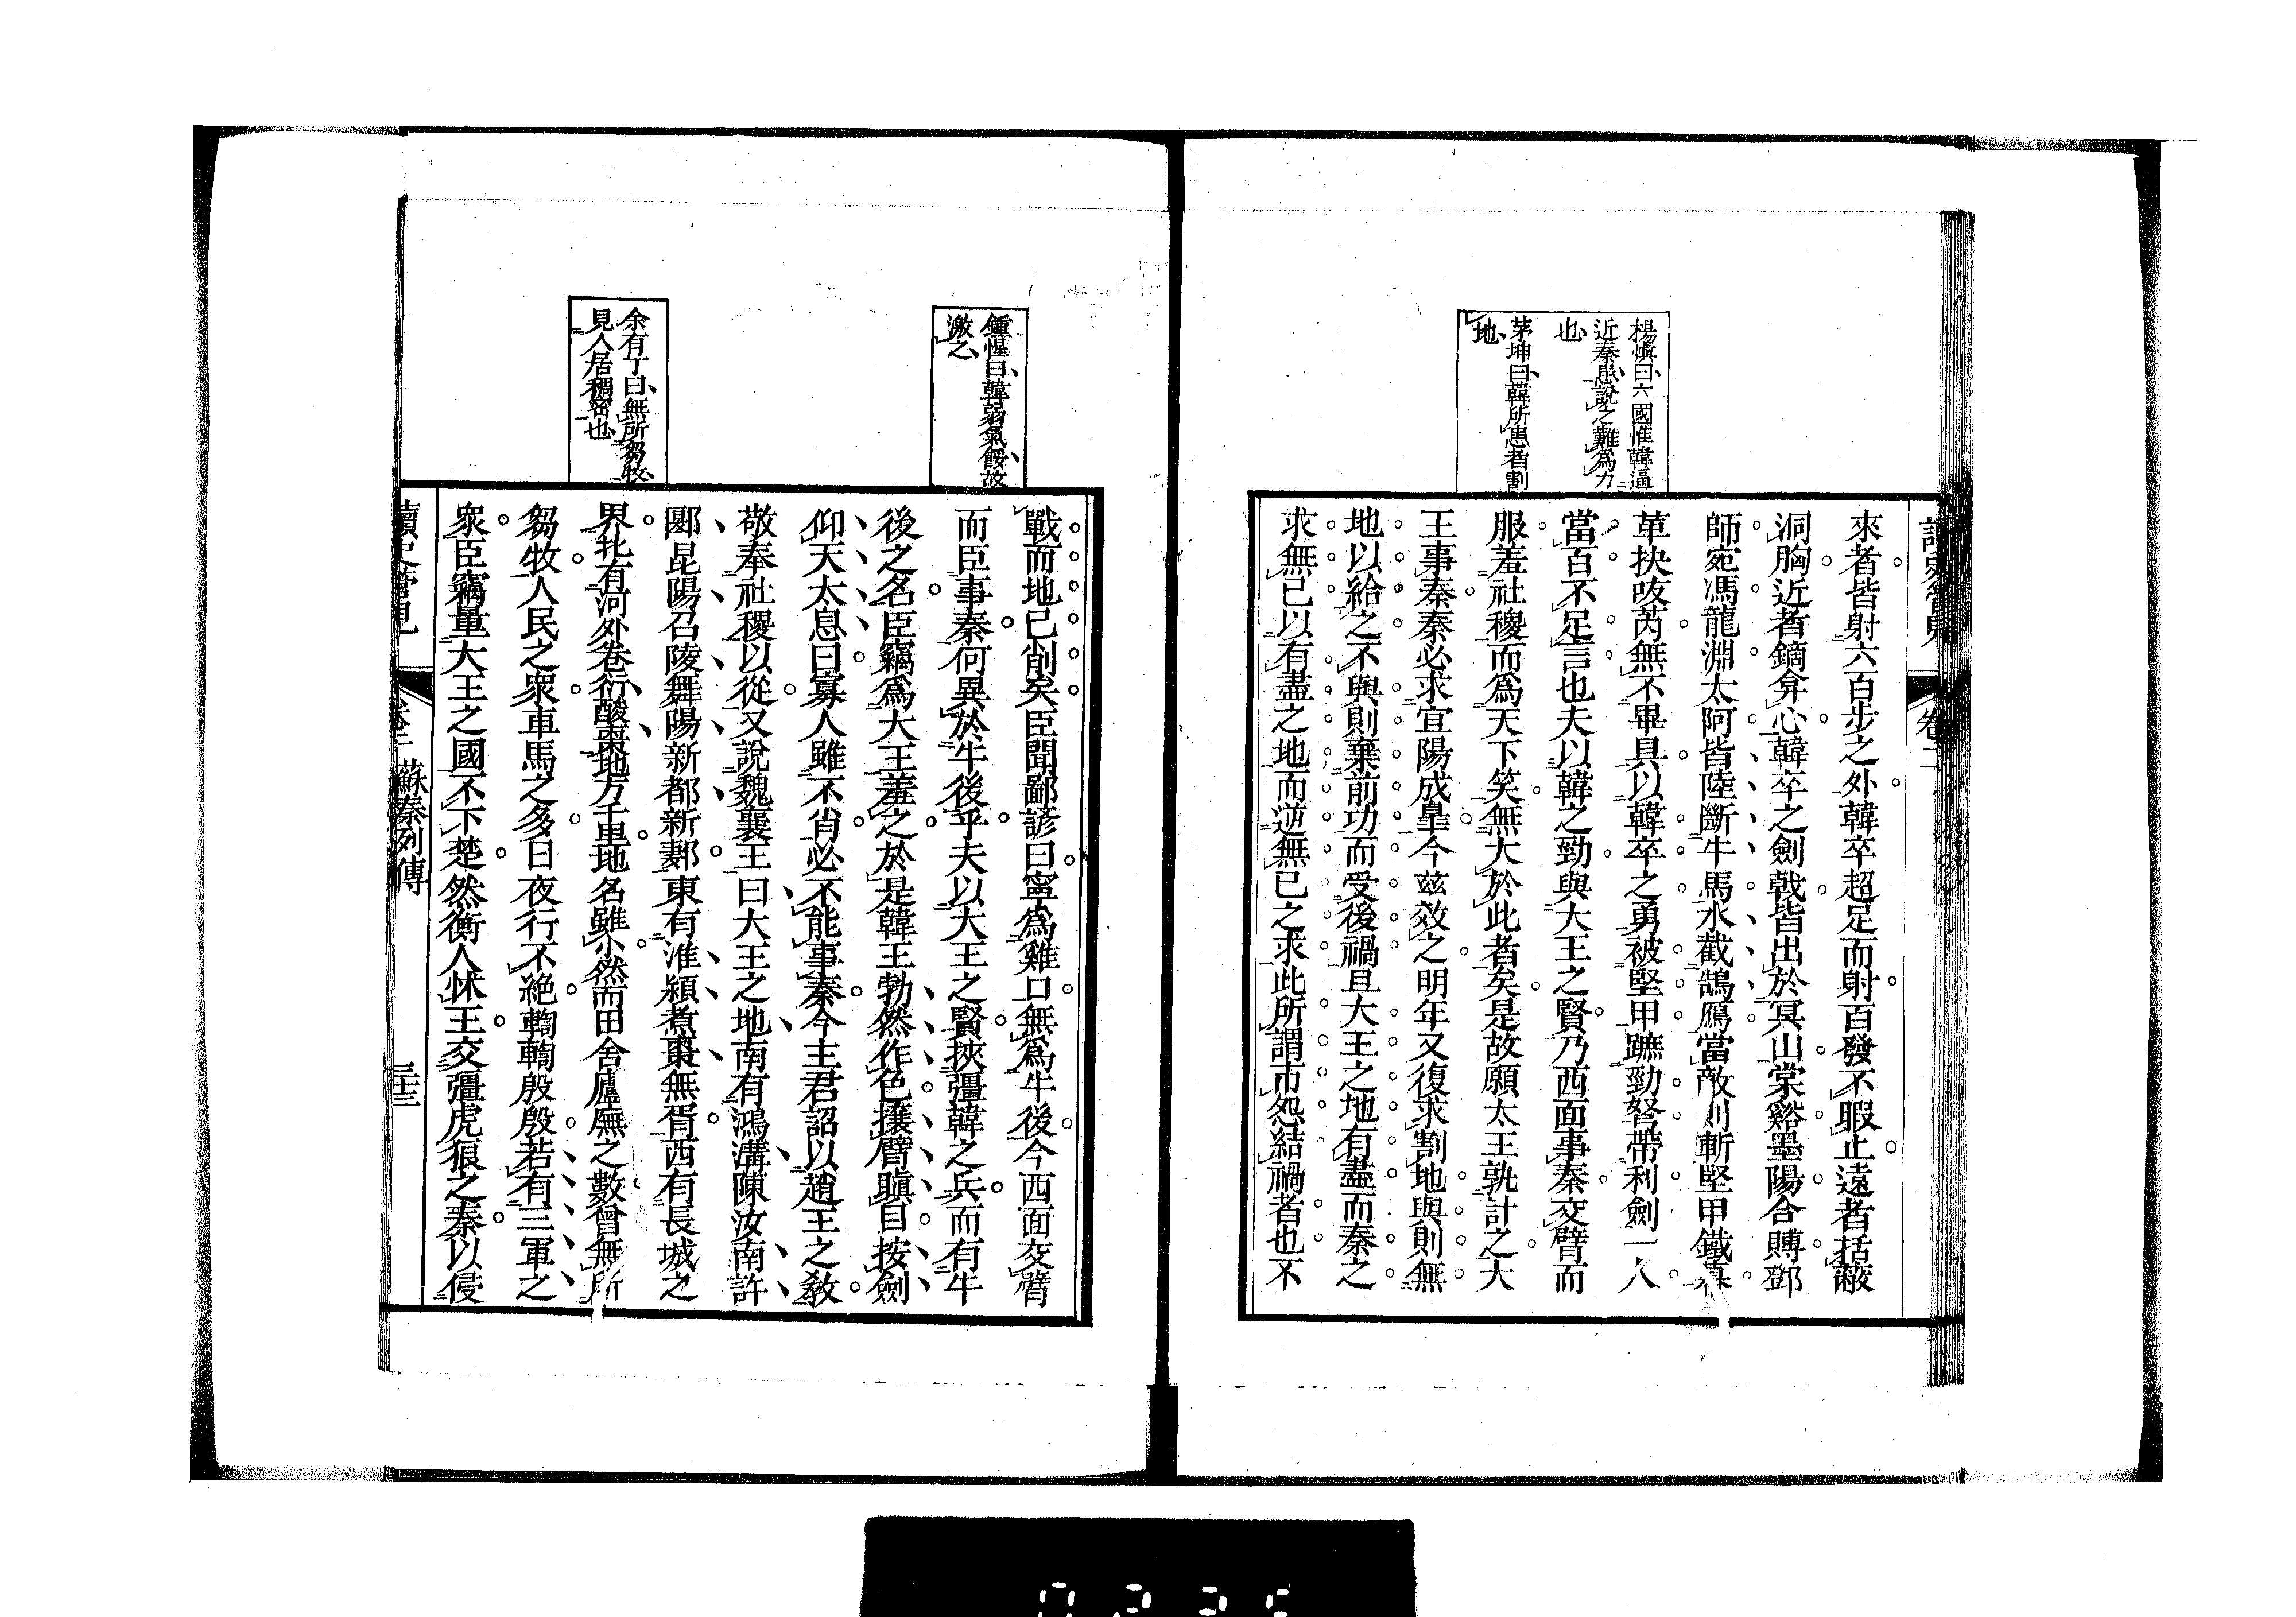 讀史管見
卷二
楊愼曰六國惟韓逼
近秦患說之難爲力
也
茅坤曰韓所患者割
地
來者皆射六百步之外韓卒超足而射百發不暇止遠者括蔽
洞胸近者鏑弇心韓卒之劍戟皆出於冥山棠谿墨陽合賻鄧
師宛馮龍淵太阿皆陸斷牛馬水截鵠鴈當敵則斬堅甲鐵幕
革抉㕹芮無不畢具以韓卒之勇被堅甲蹠勁弩帶利劍一人
當百不足言也夫以韓之勁與大王之賢乃西面事秦交臂而
服羞社稷而爲天下笑無大於此者矣是故願大王孰計之大
王事秦秦必求宜陽成皐今茲效之明年又復求割地與則無
地以給之不與則棄前功而受後禍且大王之地有盡而秦之
求無已以有盡之地而逆無已之求此所謂市怨結禍者也不
鍾惺曰韓弱氣餒故
激之
余有丁曰無所芻牧
見人居稠密也
戰而地已削矣臣聞鄙諺曰寧爲雞口無爲牛後今西面交臂
而臣事秦何異於牛後乎夫以大王之賢挾彊韓之兵而有牛
後之名臣竊爲大王羞之於是韓王勃然作色攘臂瞋目按劍
仰天太息曰寡人雖不肖必不能事秦今主君詔以趙王之敎
敬奉社稷以從又說魏襄王曰大王之地南有鴻溝陳汝南許
郾昆陽召陵舞陽新都新郪東有淮潁煮棗無胥西有長城之
界北有河外卷衍酸棗地方千里地名雖小然而田舍廬廡之數曾無所
芻牧人民之衆車馬之多日夜行不絕輷輷殷殷若有三軍之
衆臣竊量大王之國不下楚然衡人怵王交彊虎狼之秦以侵
讀史管見
卷二 蘇秦列傳
三十三